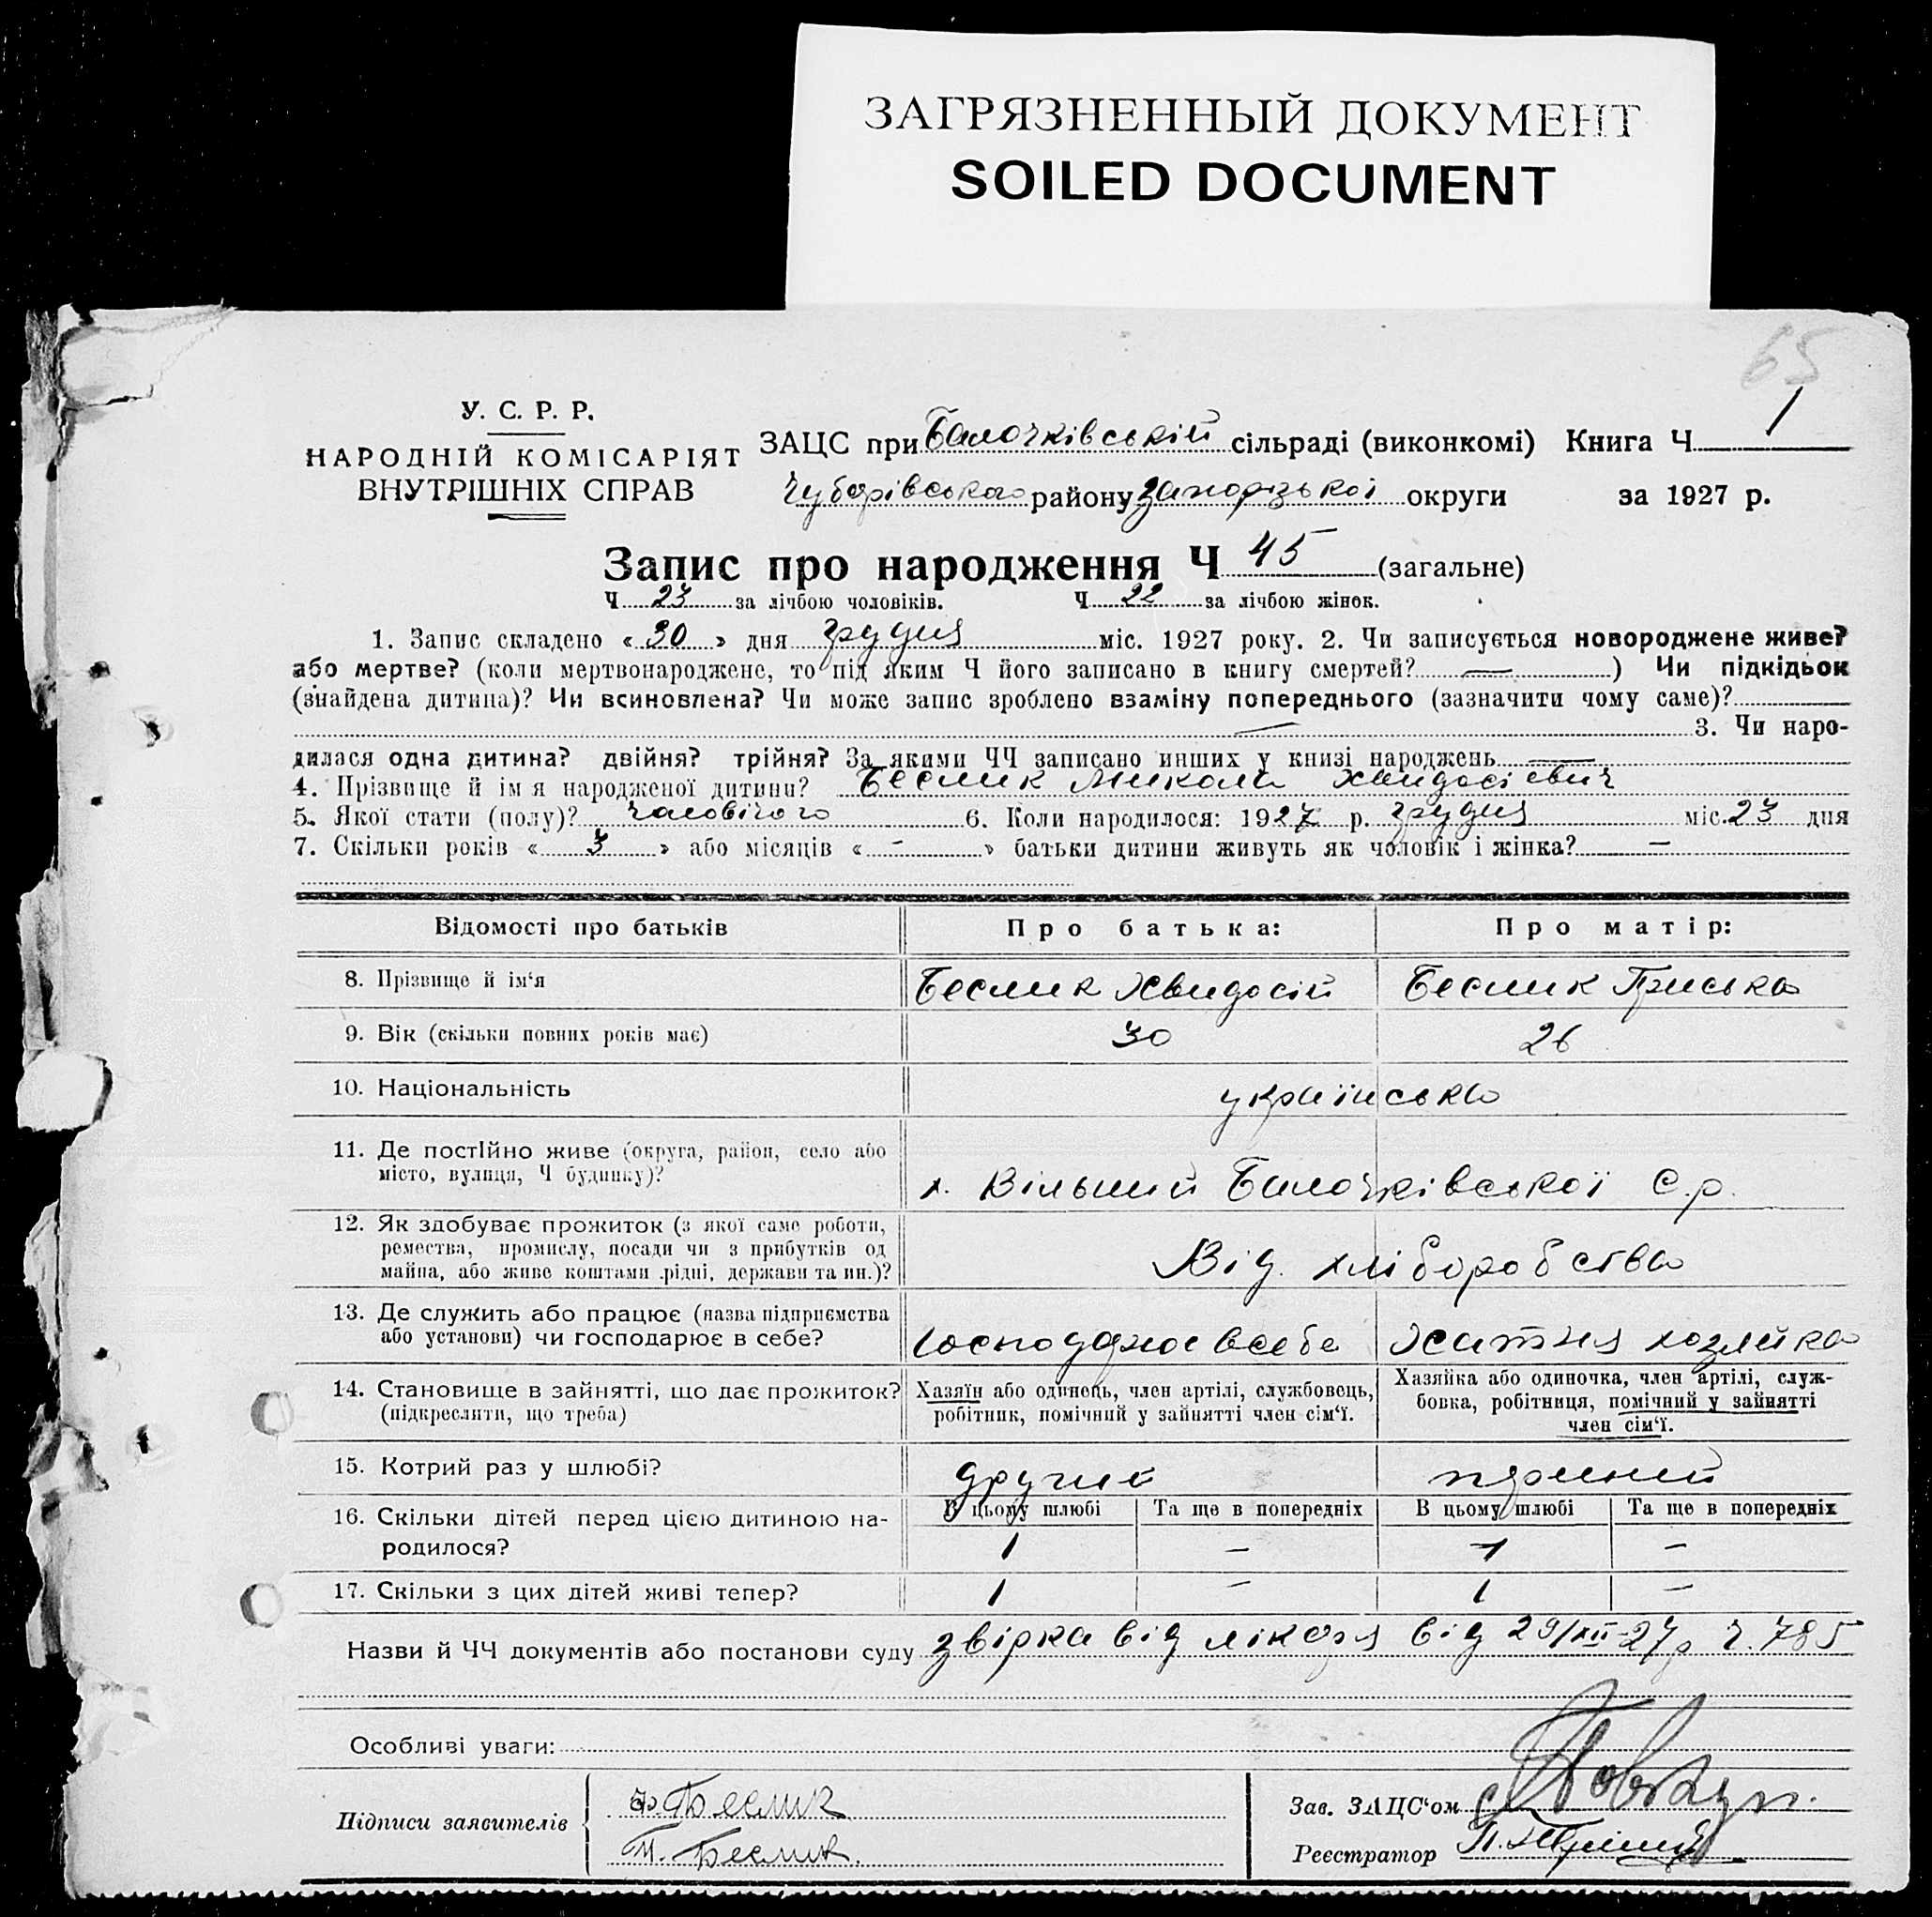 ЗАГРЯЗНЕННЫЙ ДОКУМЕНТ
SOILED DOCUMENT
65
У. С. Р. Р.
НАРОДНІЙ КОМІСАРІЯТ
ВНУТРІШНІХ СПРАВ
ЗАЦС при Балочківській сільраді (виконкомі) Книга Ч 1
Чубарівського району Запорізької округи за 1927 р.
Запис про народження Ч 45 (загальне)
Ч 23 за лічбою чоловіків. Ч 22 за лічбою жінок.
1. Запис складено «30» дня грудня міс. 1927 року. 2. Чи записується новороджене живе?
або мертве? (коли мертвонароджене, то під яким Ч його записано в книгу смертей? —) Чи підкідьок
(знайдена дитина)? Чи всиновлена? Чи може запис зроблено взаміну попереднього (зазначити чому саме)?
— 3. Чи наро-
дилася одна дитина? двійня? трійня? За якими ЧЧ записано инших у книзі народжень —
4. Прізвище й ім я народженої дитини? Беслик Микола Хвидосієвич
5. Якої стати (полу)? чоловічого 6. Коли народилося: 1927 р. грудня міс. 23 дня
7. Скільки років «3» або місяців «-» батьки дитини живуть як чоловік і жінка? —
Відомості про батьків Про батька: Про матір:
8. Прізвище й ім‘я Беслик Хвидосій Беслик Приська
9. Вік (скільки повних років має) 30 26
10. Національність українська
11. Де постійно живе (округа, район, село або
місто, вулиця, Ч будинку)? х. Вільний Балочківської С.р.
12. Як здобуває прожиток (з якої саме роботи,
ремества, промислу, посади чи з прибутків од
майна, або живе коштами рідні, держави та ин.)? Від хліборобства
13. Де служить або працює (назва підприємства
або установи) чи господарює в себе? Господарює всебе Хатня хозяйка
14. Становище в зайнятті, що дає прожиток?
(підкреслити, що треба)
Хазяїн або одинець, член артілі, службовець,
робітник, помічний у зайнятті член сім‘ї.
Хазяйка або одиночка, член артілі, служ-
бовка, робітниця, помічний у зайнятті
член сім‘ї.
15. Котрий раз у шлюбі? другий первий
16. Скільки дітей перед цією дитиною на-
родилося?
В цьому шлюбі Та ще в попередніх В цьому шлюбі Та ще в попередніх
1 — 1 —
17. Скільки з цих дітей живі тепер? 1 — 1 —
Назви й ЧЧ документів або постанови суду звірка від лікаря від 29/XII-27р ч. 785
Особливі уваги:
Підписи заявителів
Х. Беслик
П. Беслик.
Зав. ЗАЦС‘ом
Реєстратор